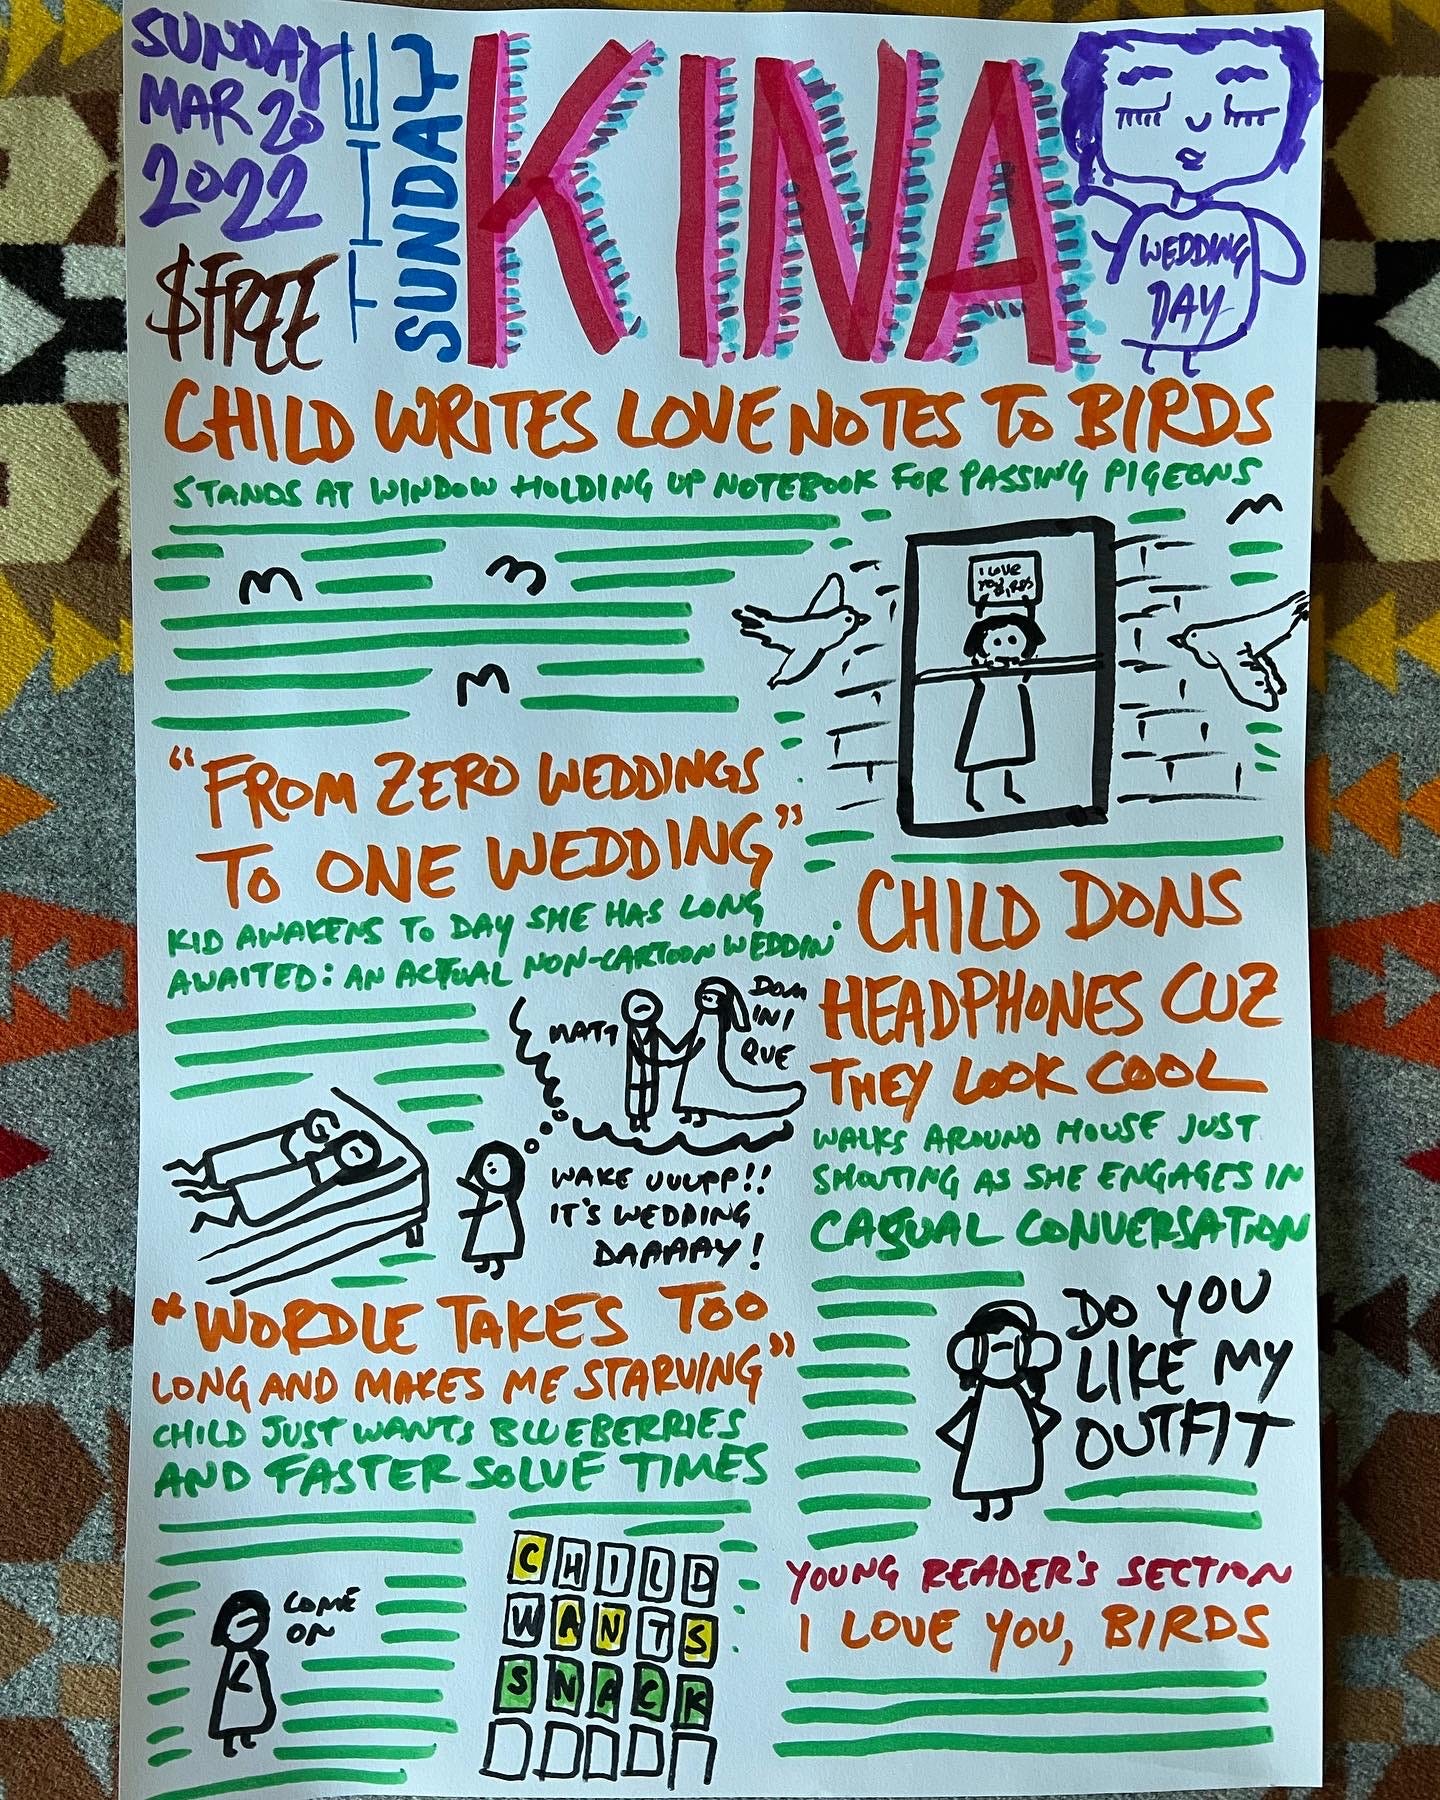 SUNDAY
MAR 20
2022
$FREE
THE
SUNDAY
KINA
WEDDING
DAY
CHILD WRITES LOVE NOTES TO BIRDS
STANDS AT WINDOW HOLDING UP NOTEBOOK FOR PASSING PIGEONS
I LOVE
YOU BIRDS
"FROM ZERO WEDDINGS
TO ONE WEDDING"
KID AWAKENS TO DAY SHE HAS LONG
AWAITED: AN ACTUAL NON-CARTOON WEDDIN'
MATT
DOM
INI
QUE
WAKE UUUPP!!
IT'S WEDDING
DAAAAY!
CHILD DONS
HEADPHONES CUZ
THEY LOOK COOL
WALKS AROUND HOUSE JUST
SHOUTING AS SHE ENGAGES IN
CASUAL CONVERSATION
DO YOU
LIKE MY
OUTFIT
"WORDLE TAKES TOO
LONG AND MAKES ME STARVING"
CHILD JUST WANTS BLUEBERRIES
AND FASTER SOLVE TIMES
COME
ON
CHILD
WANTS
SNACK
YOUNG READER'S SECTION
I LOVE YOU, BIRDS